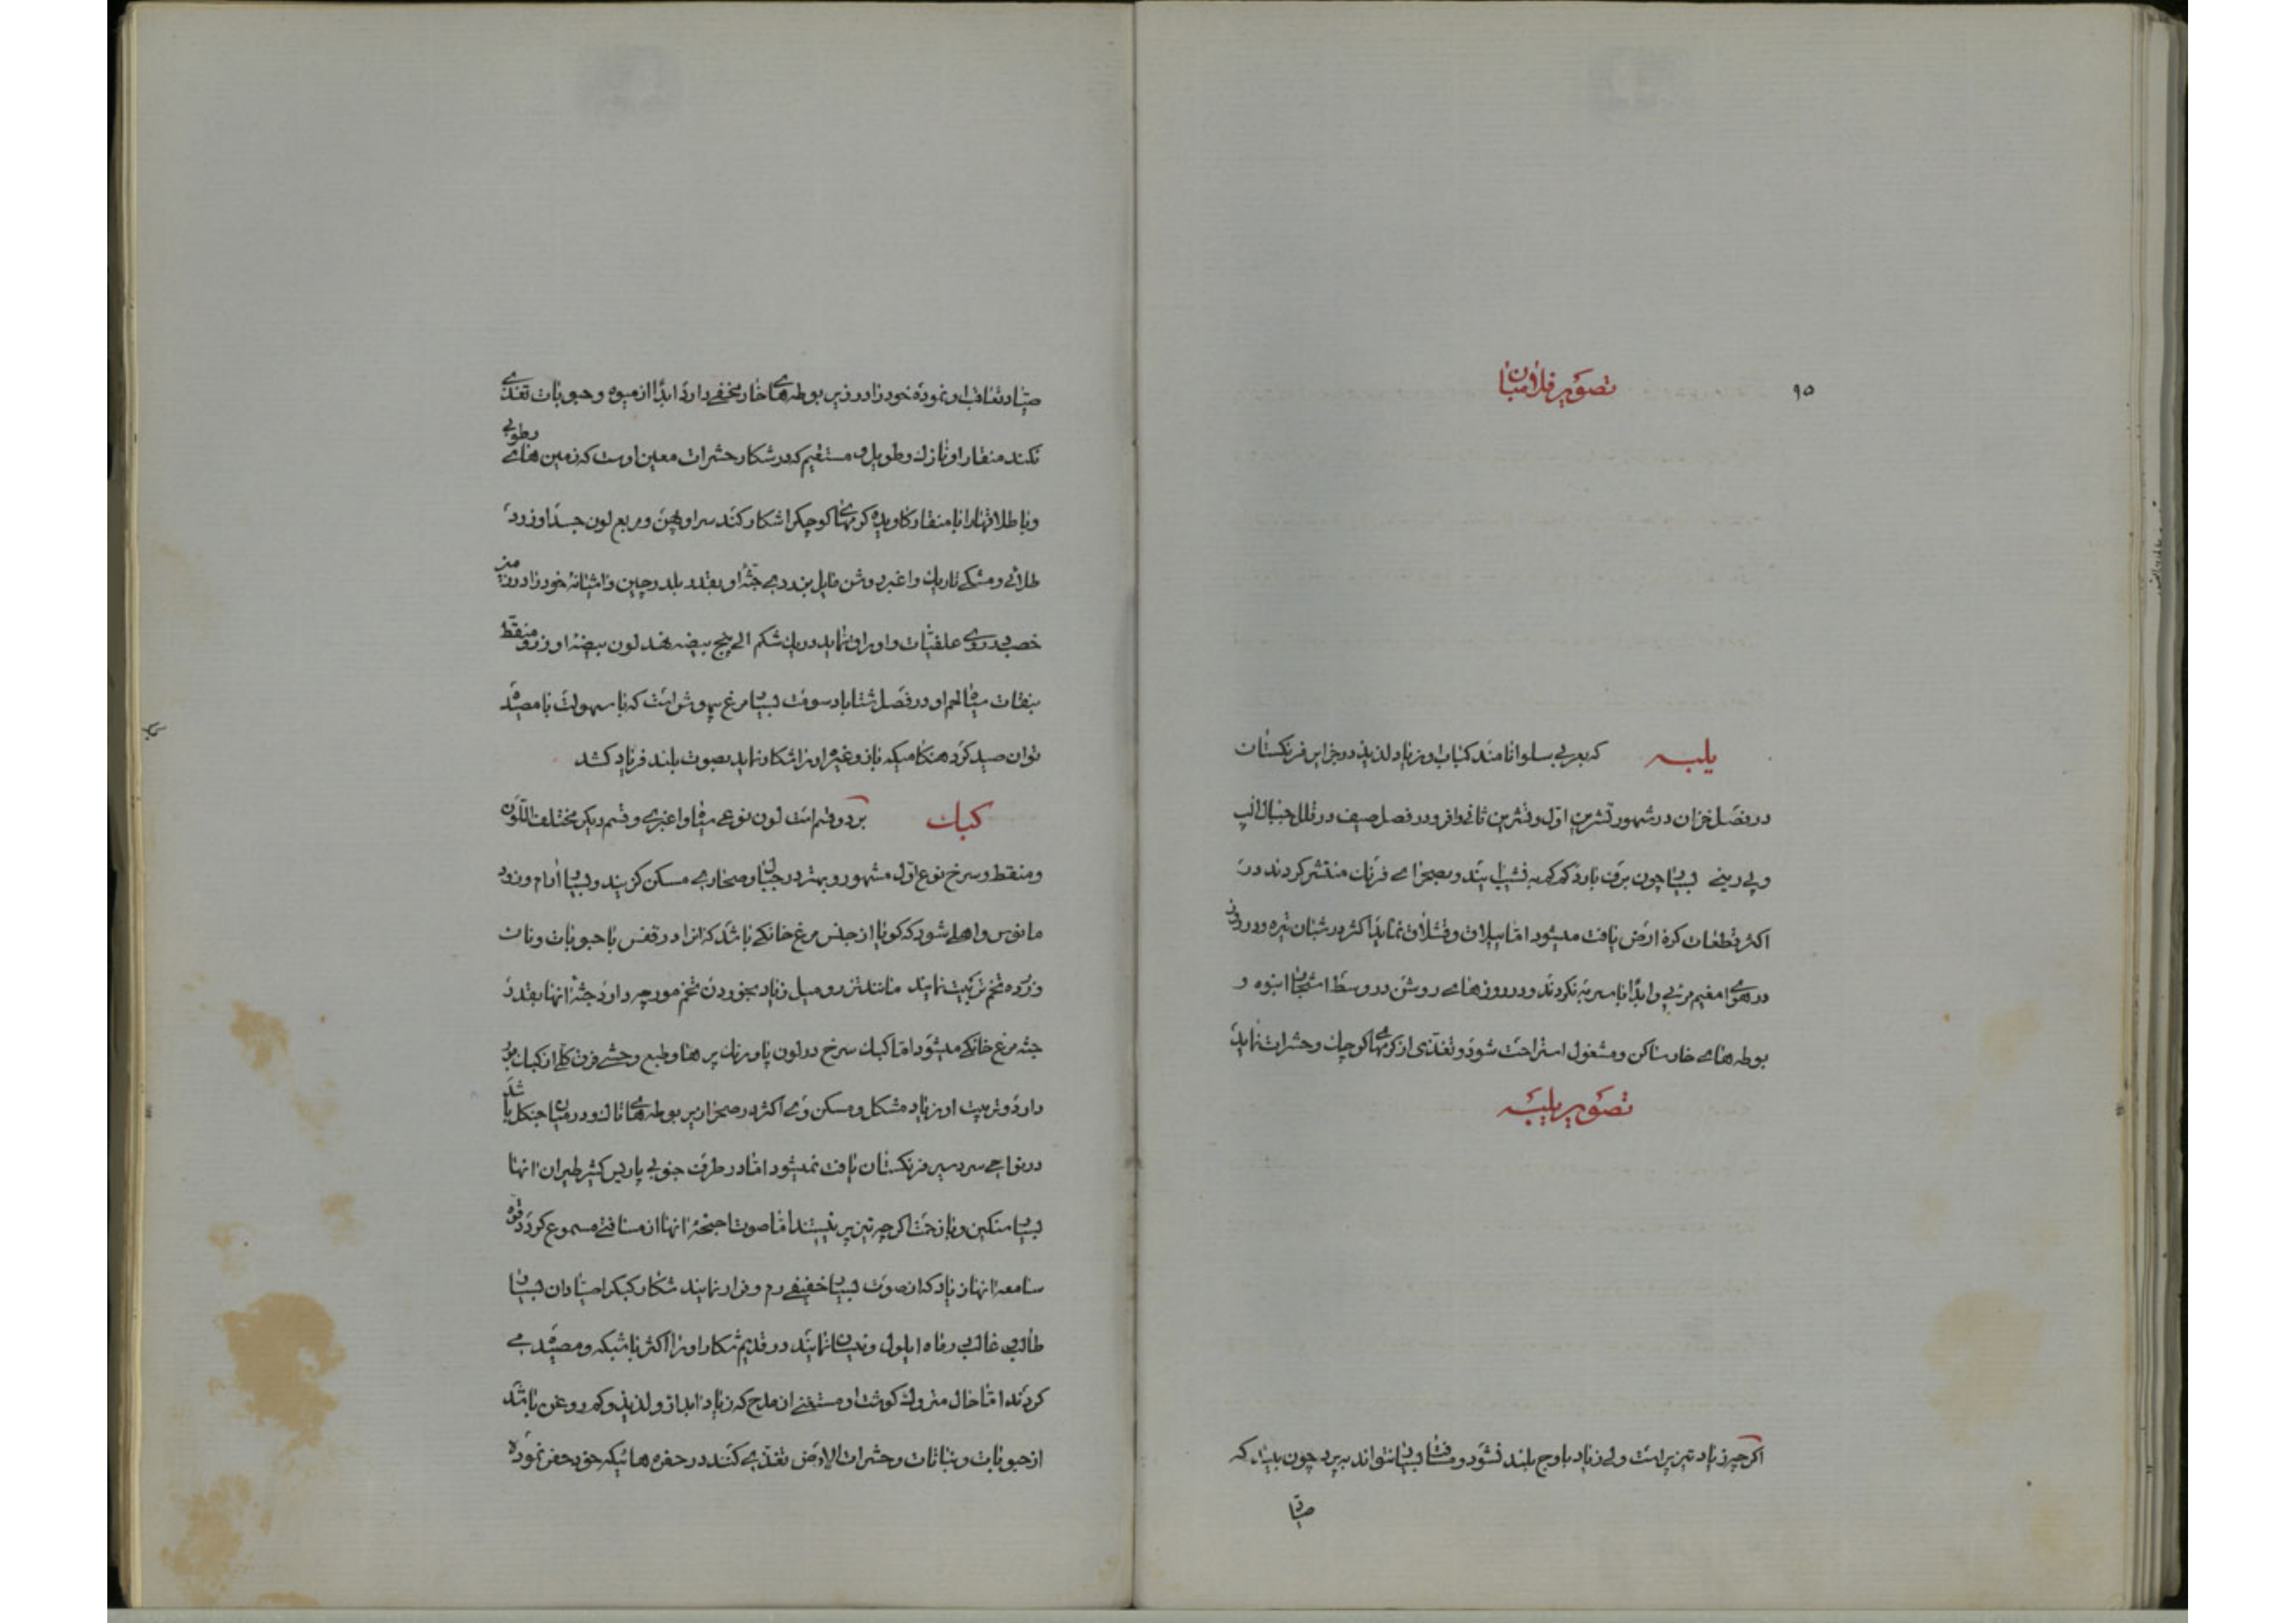 ۹۵
تصویر فلامیان
یلبه که بعربی سلوانامند کمیاب و زیاد لذیذ در جزایر فرنکستان
در فصل خزان در شهور تشرین اول و تشرین ثانی وافر و در فصل صیف در قلل جبال الپ
و پی رینی بسیار چون برف بارد کم کم به نشیب ایند و بصحرای فرنک منتشر کردند در
اکثر قطعات کره ارض یافت میشود اما ییلاق و قشلاق نماید اکثر در شبان تیره و در روز
در هوای مغیم مرئی و ابدا با سربه نکردند و در روز های روشن در وسط اشجار انبوه و
بوطه های خار ساکن و مشغول استراحت شود و تغذی از کرمهای کوچک و حشرات نماید
تصویر یلبه
اکرچه زیاد تیز پر است ولی زیاد باوج بلند نشود و مسافت بسیار نتواند بپرد چون بیند که
صیاد
صیاد تعاقب او نموده خود را در زیر بوطه های خار مخفی دارد ابدا از میوه و حبوبات تغذی
نکند منقار او نازک و طویل و مستقیم که در شکار حشرات معین اوست که زمین های رطوبی
و باطلاقها را با منقار کاویده کرمهای کوچک را شکار کند سر او پهن و مربع لون جسد او زرد
طلائی و مشکی تاریک و اغبر روشن مایل بزردی جثه او بقدر بلدرچین و اشیانه خود را در زمین
خصب روی علفیات و اوراق نماید در یک شکم الی پنج بیضه نهد لون بیضه او زرد منقط
بنقات سیاه لحم او در فصل شتا یاد سومت بسیار مرغ بیهوش است که با سهولت با مصیده
توان صید کرد هنکامیکه باز و غیره او را شکار نماید بصوت بلند فریاد کشد
کبک بر دو قسم است لون نوعی سیاه و اغبری و قسم دیکر مختلف اللون
و منقط و سرخ نوع اول مشهور و بهتر در جبال و صحاری مسکن کزینند و بسیار ارام و زود
مانوس و اهلی شود که کویا از جنس مرغ خانکی باشد که انرا در قفس با حبوبات و نان
و زرده تخم تربیت نمایند مانند تزرو میل زیاد بخوردن تخم مورچه دارد جثه انها بقدر
جثه مرغ خانکی میشود اما کبک سرخ در لون پا و رنک پر ها و طبع وحشی فرق کلی از کبک مزبور
دارد و تربیت او زیاد مشکل و مسکن وی اکثر در صحرا زیر بوطه های تاک و در میان جنکل باشد
در نواحی سردسیر فرنکستان یافت نمیشود اما در طرف جنوبی پاریس کثیر طیران انها
بسیار سنکین و با زحمت اکرچه تیز پر نیستند اما صوت اجنحه انها از مسافتی مسموع کردد قوه
سامعه انها زیاد که از صوت بسیار خفیفی رم و فرار نمایند شکار کبک را صیادان بسیار
طالب غالب در ماه ایلول و نیسان نمایند در قدیم شکار او را اکثر با شبکه و مصیده می
کردند اما حال متروک کوشت او مستغنی از مدح که زیاد ابدار و لذیذ و کم روغن باشد
از حبوبات و نباتات و حشرات الارض تغذی کنند در حفره هائیکه خود حفر نموده